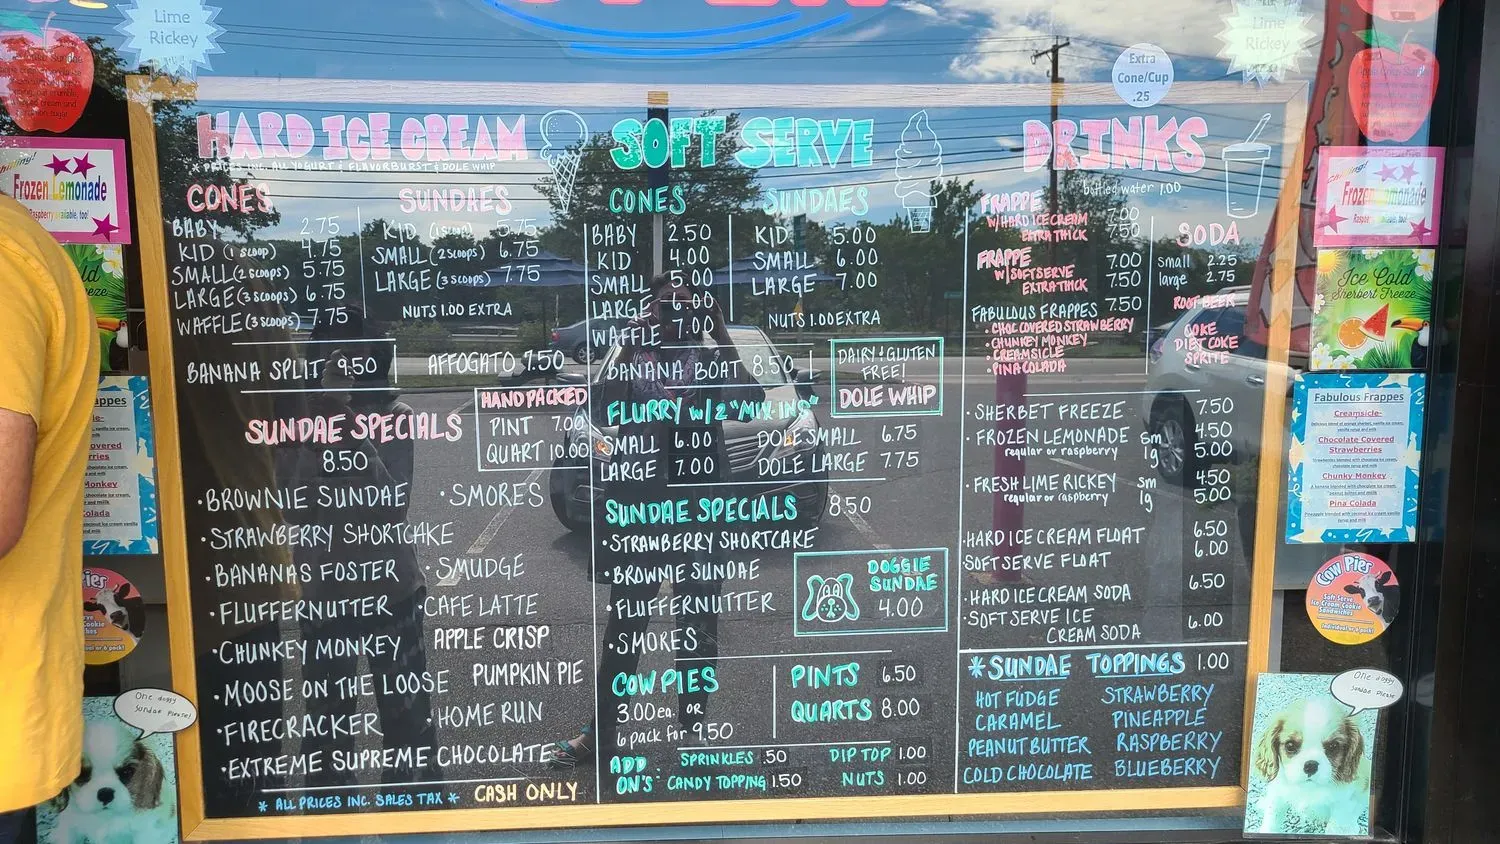 OPEN
Lime
Rickey
Lime
Rickey
Extra
Cone/Cup
.25
HARD ICE CREAM
* PRICES INC. ALL YOGURT & FLAVORBURST & DOLE WHIP
CONES
BABY 2.75
KID (1 SCOOP) 4.75
SMALL (2 SCOOPS) 5.75
LARGE (3 SCOOPS) 6.75
WAFFLE (3 SCOOPS) 7.75
SUNDAES
KID (1 SCOOP) 5.75
SMALL (2 SCOOPS) 6.75
LARGE (3 SCOOPS) 7.75
NUTS 1.00 EXTRA
BANANA SPLIT 9.50
AFFOGATO 7.50
SUNDAE SPECIALS
8.50
HAND PACKED
PINT 7.00
QUART 10.00
• BROWNIE SUNDAE
• SMORES
• STRAWBERRY SHORTCAKE
• BANANAS FOSTER
• SMUDGE
• FLUFFERNUTTER
• CAFE LATTE
• CHUNKEY MONKEY
APPLE CRISP
• MOOSE ON THE LOOSE
PUMPKIN PIE
• FIRECRACKER
• HOME RUN
• EXTREME SUPREME CHOCOLATE
* ALL PRICES INC. SALES TAX *
CASH ONLY
SOFT SERVE
CONES
BABY 2.50
KID 4.00
SMALL 5.00
LARGE 6.00
WAFFLE 7.00
SUNDAES
KID 5.00
SMALL 6.00
LARGE 7.00
NUTS 1.00 EXTRA
BANANA BOAT 8.50
DAIRY & GLUTEN
FREE!
DOLE WHIP
FLURRY w/ 2 "MIX-INS"
SMALL 6.00
LARGE 7.00
DOLE SMALL 6.75
DOLE LARGE 7.75
SUNDAE SPECIALS 8.50
• STRAWBERRY SHORTCAKE
• BROWNIE SUNDAE
• FLUFFERNUTTER
• SMORES
DOGGIE
SUNDAE
4.00
COW PIES
3.00 ea. OR
6 pack for 9.50
PINTS 6.50
QUARTS 8.00
ADD
ON'S:
SPRINKLES .50
DIP TOP 1.00
CANDY TOPPING 1.50
NUTS 1.00
DRINKS
bottled water 1.00
FRAPPE 7.00
W/HARD ICE CREAM
EXTRA THICK 7.50
FRAPPE 7.00
W/SOFTSERVE
EXTRA THICK 7.50
FABULOUS FRAPPES 7.50
• CHOC COVERED STRAWBERRY
• CHUNKY MONKEY
• CREAMSICLE
• PINA COLADA
SODA
small 2.25
large 2.75
ROOT BEER
COKE
DIET COKE
SPRITE
• SHERBET FREEZE 7.50
• FROZEN LEMONADE sm 4.50
regular or raspberry lg 5.00
• FRESH LIME RICKEY sm 4.50
regular or raspberry lg 5.00
• HARD ICE CREAM FLOAT 6.50
SOFT SERVE FLOAT 6.00
• HARD ICE CREAM SODA 6.50
• SOFT SERVE ICE
CREAM SODA 6.00
* SUNDAE TOPPINGS 1.00
HOT FUDGE
STRAWBERRY
CARAMEL
PINEAPPLE
PEANUT BUTTER
RASPBERRY
COLD CHOCOLATE
BLUEBERRY
Frozen Lemonade
Raspberry available, too!
One doggy
Sundae Please!
Frozen Lemonade
Ice Cold
Sherbert Freeze
Fabulous Frappes
Creamsicle-
Chocolate Covered
Strawberries
Chunky Monkey
Pina Colada
COW PIES
Soft Serve
Ice Cream Cookie
Sandwiches
Individual or 6 pack!
One doggy
Sundae Please